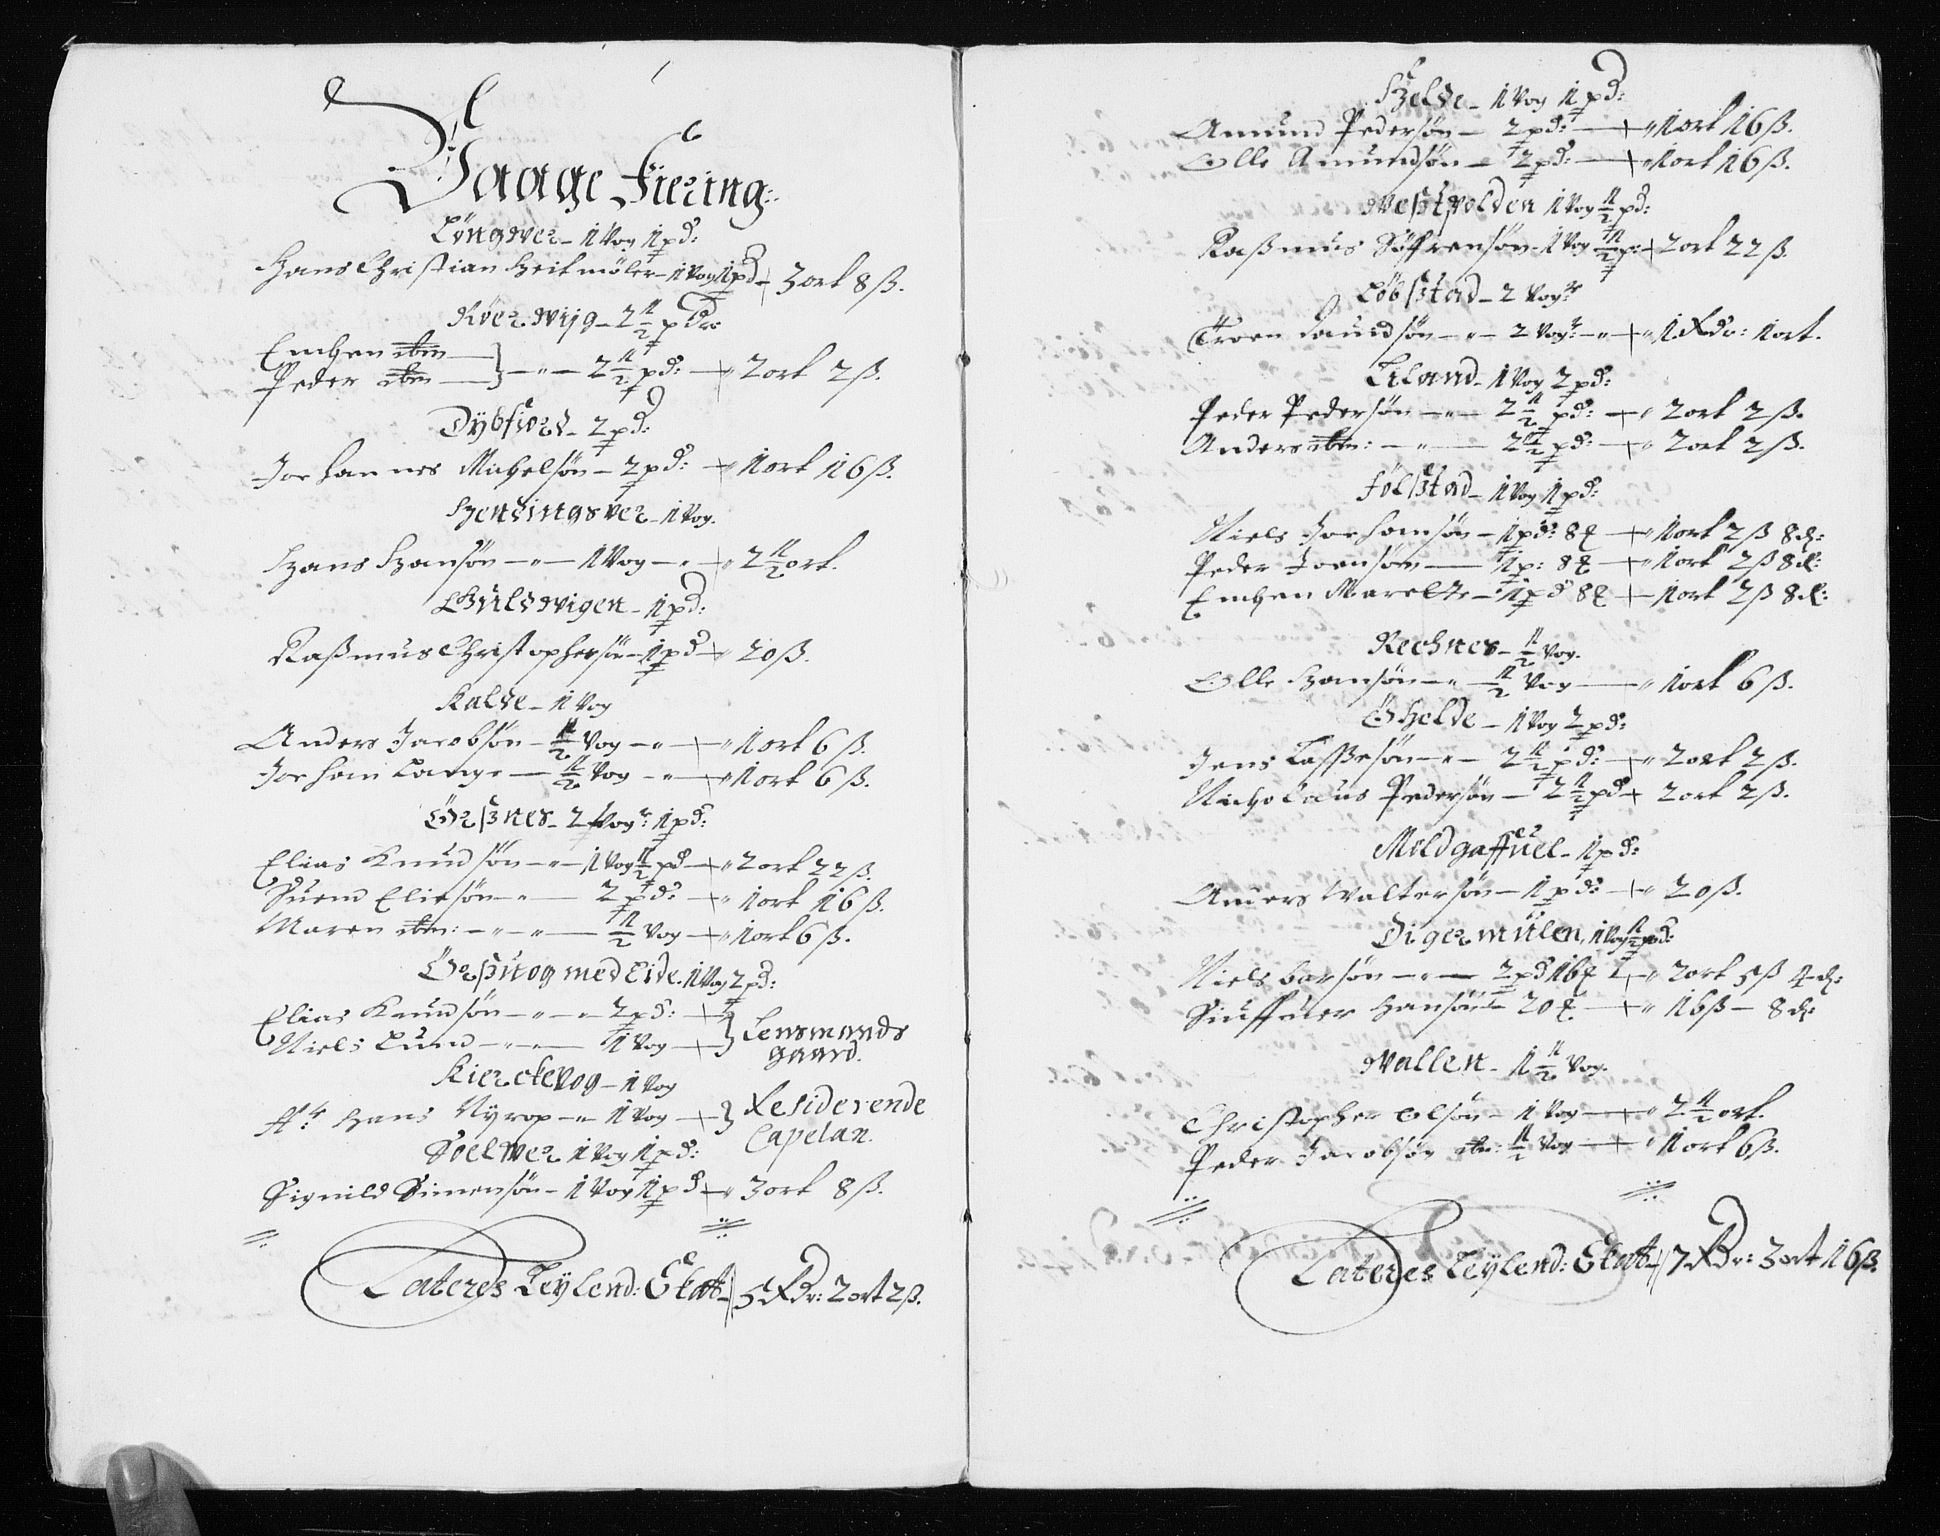 Vaage Fiering:
Löngwer - 1 Vog 1 pd:
Hans Christian Heitmöler - 1 Vog 1 pd - 3 ort 8 ß.
Röerwijg - 2 1/2 pdr:
Enchen ibm
Peder ibm - 2 1/2 pd: - 2 ort 2 ß.
Dybfiord - 2 pd:
Johannes Michelsön - 2 pd: - 1 ort 16 ß.
Henningsver - 1 Vog.
Hans Hansön - 1 Vog - 2 1/2 ort.
Gulvwigen - 1 pd:
Raßmus Christophersön - 1 pd - 20 ß.
Kalde - 1 Vog
Anders Jacobsön - 1/2 Vog - 1 ort 6 ß.
Johan Lange - 1/2 Vog - 1 ort 6 ß.
Örßnes - 2 Vogr: 1 pd:
Elias Knudsön - 1 Vog 1/2 pd - 2 ort 22 ß.
Suend Eliesön - 2 pd: - 1 ort 16 ß.
Maren ibm: - 1/2 Vog - 1 ort 6 ß.
Örßuog med Eide. 1 Vog 2 pd:
Elias Knudsön - 2 pd:
Niels Lund - 1 Vog - Lensmands gaard.
Kierckevog - 1 Vog
Hr: Hans Nyrop - 1 Vog - Residerende Capelan.
Soelwer 1 Vog 1 pd:
Signild Simensön - 1 Vog 1 pd - 3 ort 8 ß.
Lateres Leylend: - 5 Rdr: 2 ort 2 ß.
Helde - 1 Vog 1 pd:
Amund Pedersön - 2 pd: - 1 ort 16 ß.
Olle Amundsön - 2 pd: - 1 ort 16 ß.
Westpolden 1 Vog 1/2 pd:
Raßmus Söffrensön - 1 Vog 1/2 p: - 2 ort 22 ß.
Löbßtad - 2 Vogr
Troen Laurdsön - 2 Vogr - 1 Rdr: 1 ort.
Liland - 1 Vog 2 pd:
Peder Pedersön - 2 1/2 pd: - 2 ort 2 ß.
Anders ibm: - 2 1/2 pd: - 2 ort 2 ß.
Fölßtad - 1 Vog 1 pd:
Niels Johansön - 1 pd: 8 - 1 ort 2 ß 8 d:
Peder Joensön - 1 p: 8 - 1 ort 2 ß 8 d:
Enchen Marette - 1 pd 8 - 1 ort 2 ß 8 d:
Rechnes - 1/2 Vog.
Olle Hansön - 1/2 Vog - 1 ort 6 ß.
Öhelde - 1 Vog 2 pd:
Jens Laßesön - 2 1/2 pd: - 2 ort 2 ß.
Nicholaus Pedersön - 2 1/2 pd - 2 ort 2 ß.
Moldgaffuel - 1 pd:
Anders Woltersön - 1 pd: - 20 ß.
Digermülen, 1 Vog 1/2 pd:
Niels Barsön - 2 pd 16 - 2 ort 5 ß 4 d:
Siuffuer Hansön - 20 - 16 ß - 8 d:
Wallen - 1 1/2 Vog.
Christopher Olsön - 1 Vog - 2 1/2 ort.
Peder Jacobsön ibm: 1/2 Vog - 1 ort 6 ß.
Lateres Leylend: - 7 Rdr: 3 ort 16 ß.